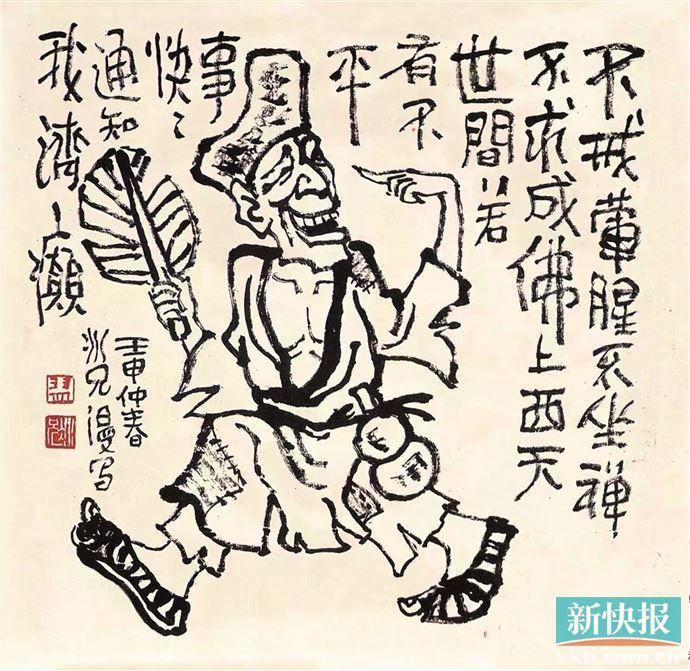 不戒葷腥不坐禪
不求成佛上西天
世間若
有不
平
事
快〻
通知
我濟〻癲
壬申仲春
冰兄漫写
新快报
xkb.com.cn